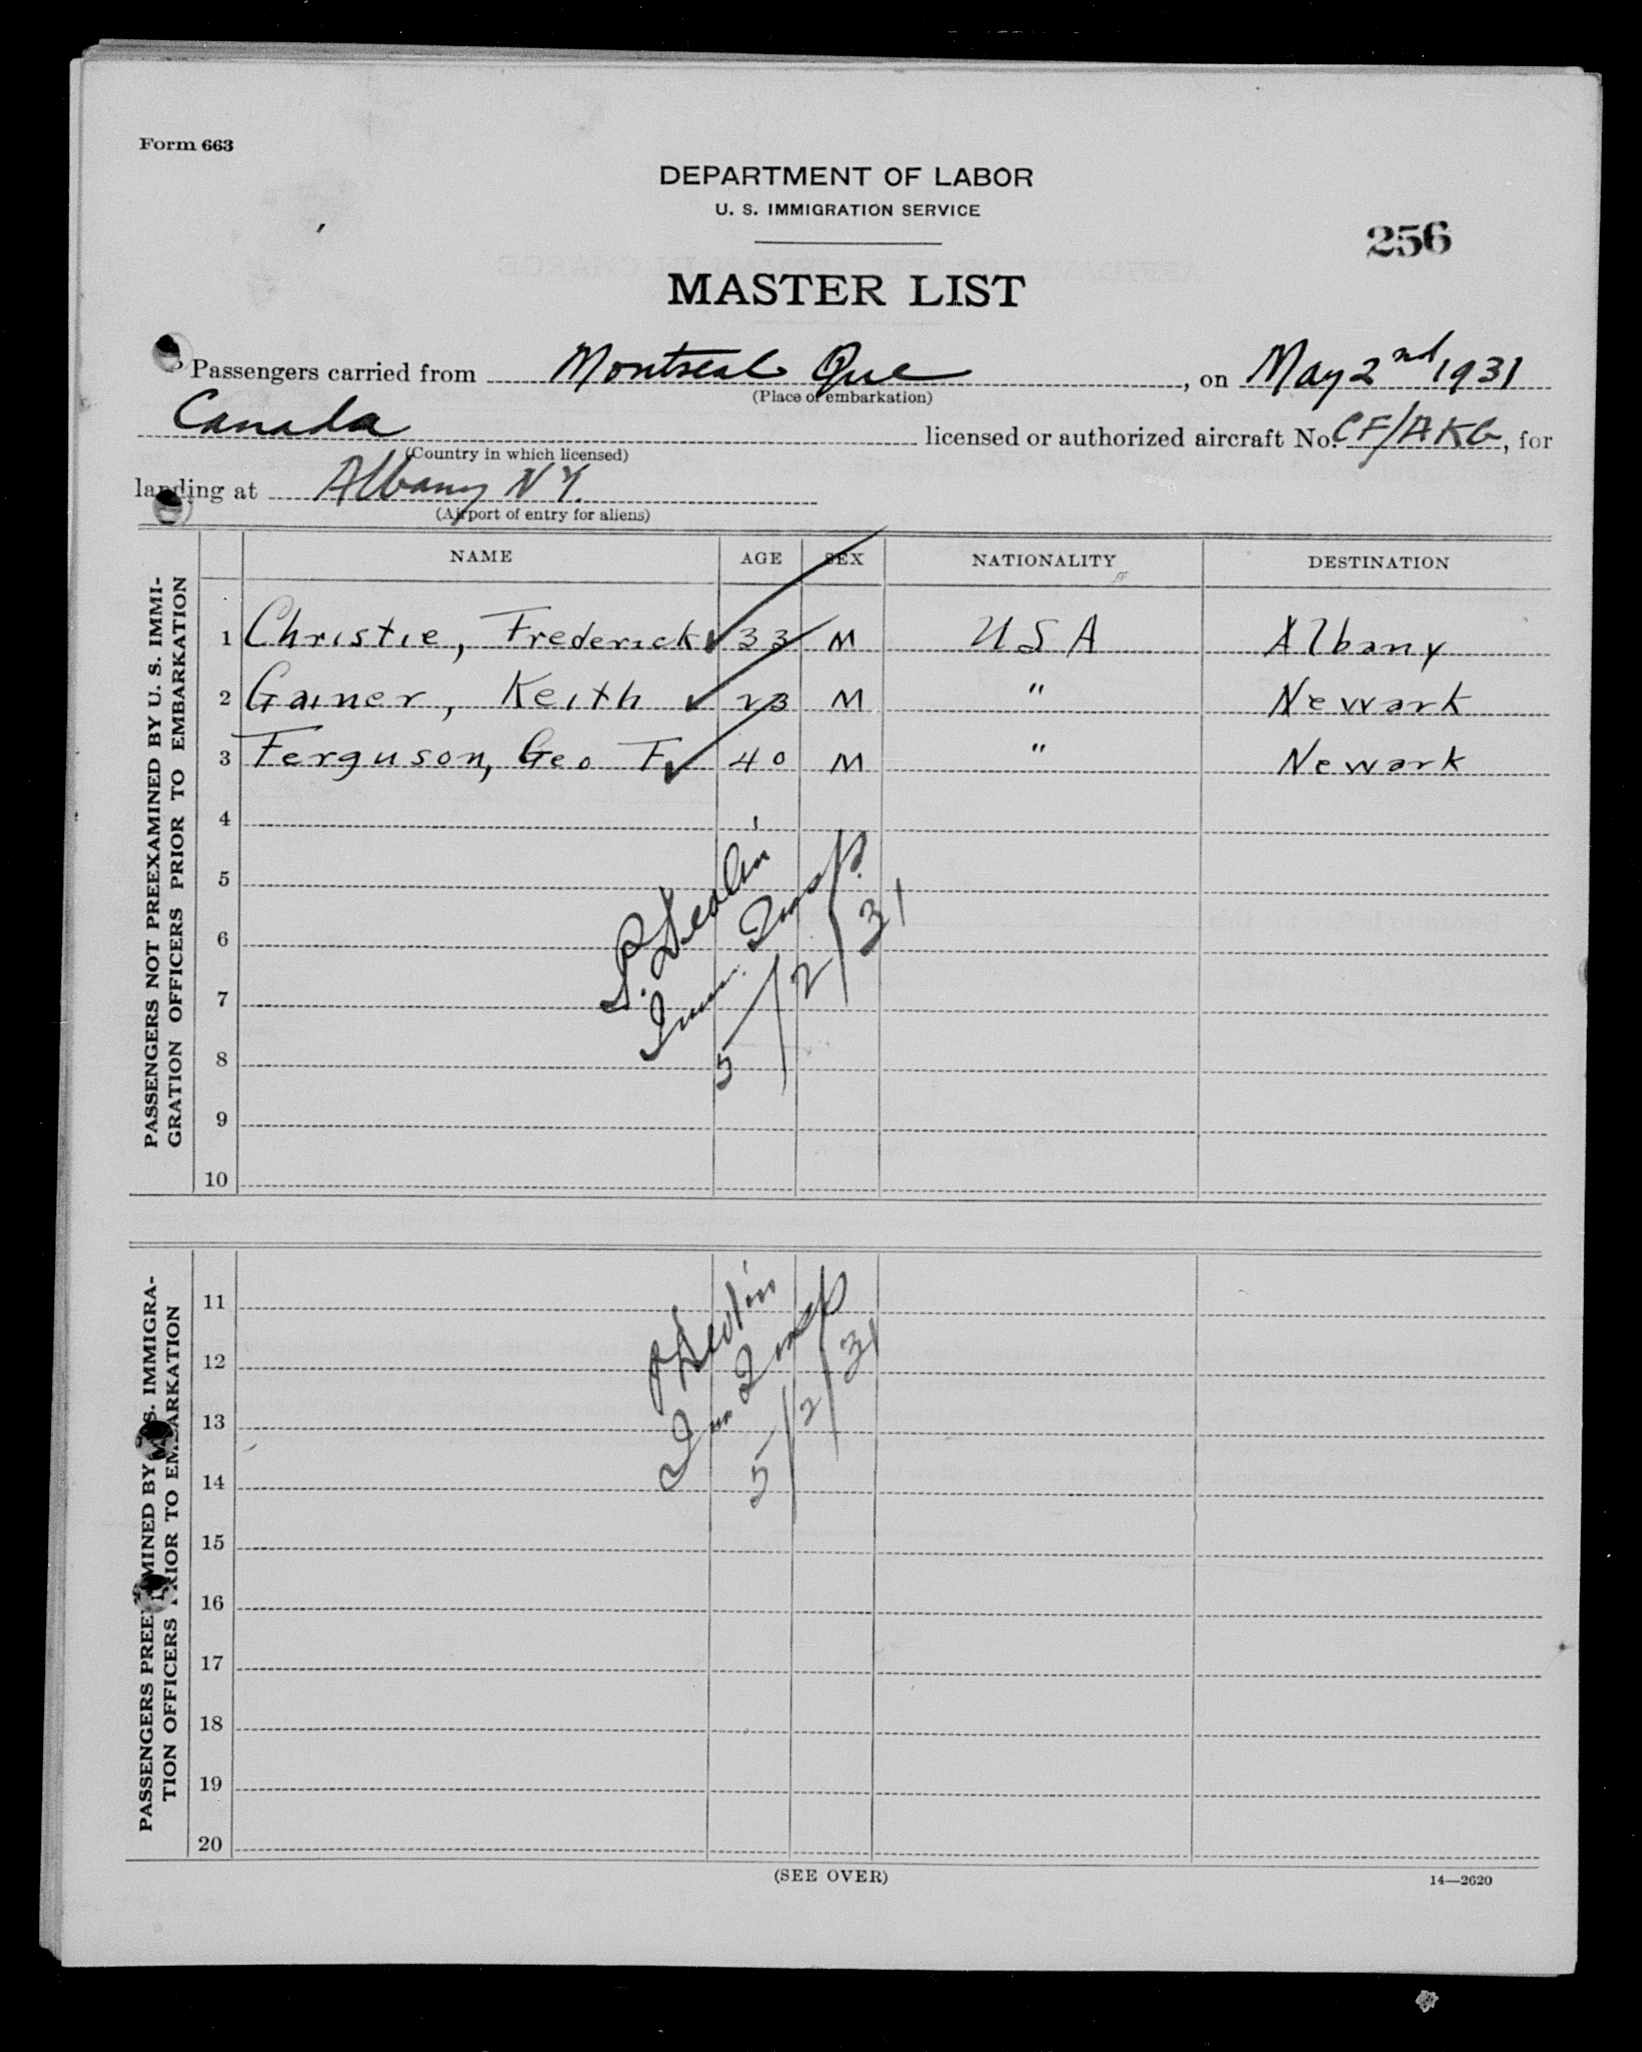 Form 663
DEPARTMENT OF LABOR
U. S. IMMIGRATION SERVICE
256
MASTER LIST
Passengers carried from Montreal Que, on May 2nd 1931
(Place of embarkation)
Canada licensed or authorized aircraft No. CF/AKG, for
(Country in which licensed)
landing at Albany N Y.
(Airport of entry for aliens)
NAME AGE SEX NATIONALITY DESTINATION
PASSENGERS NOT PREEXAMINED BY U. S. IMMI-
GRATION OFFICERS PRIOR TO EMBARKATION
1 Christie, Frederick 33 M U S A Albany
2 Gainer, Keith 23 M " Newark
3 Ferguson, Geo F. 40 M " Newark
4
5
6
7
8
9
10
Imm. Insp.
5/2/31
PASSENGERS PREEXAMINED BY U. S. IMMIGRA-
TION OFFICERS PRIOR TO EMBARKATION
11
12
13
14
15
16
17
18
19
20
Imm Insp
5/2/31
(SEE OVER)
14—2620